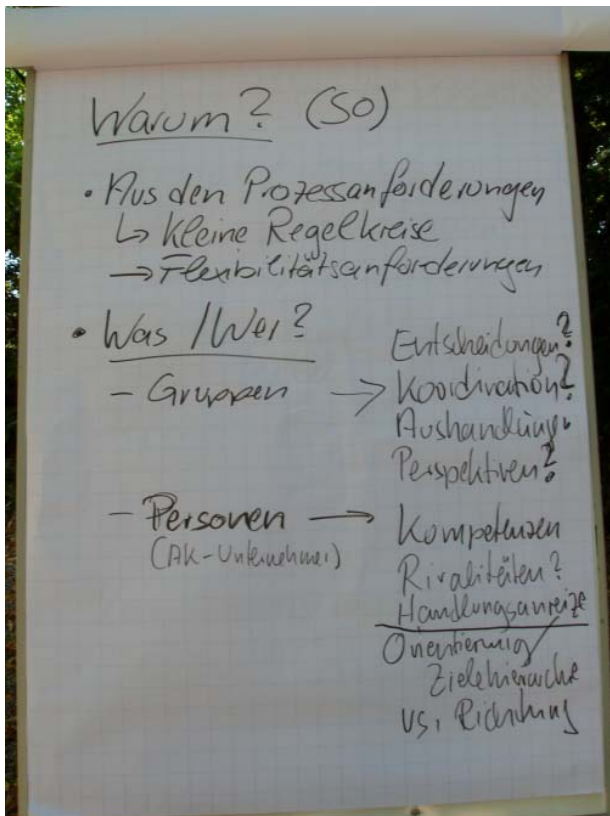 Warum? (So)
• Aus den Prozessanforderungen
↳ Kleine Regelkreise
→ Flexibilitätsanforderungen
• Was / Wer?
– Gruppen →
Entscheidungen?
Koordination?
Aushandlung?
Perspektiven?
– Personen →
(AK-Unternehmer)
Kompetenzen
Rivalitäten?
Handlungsanreize
Orientierung/
Zielehierarchie
vs. Richtung